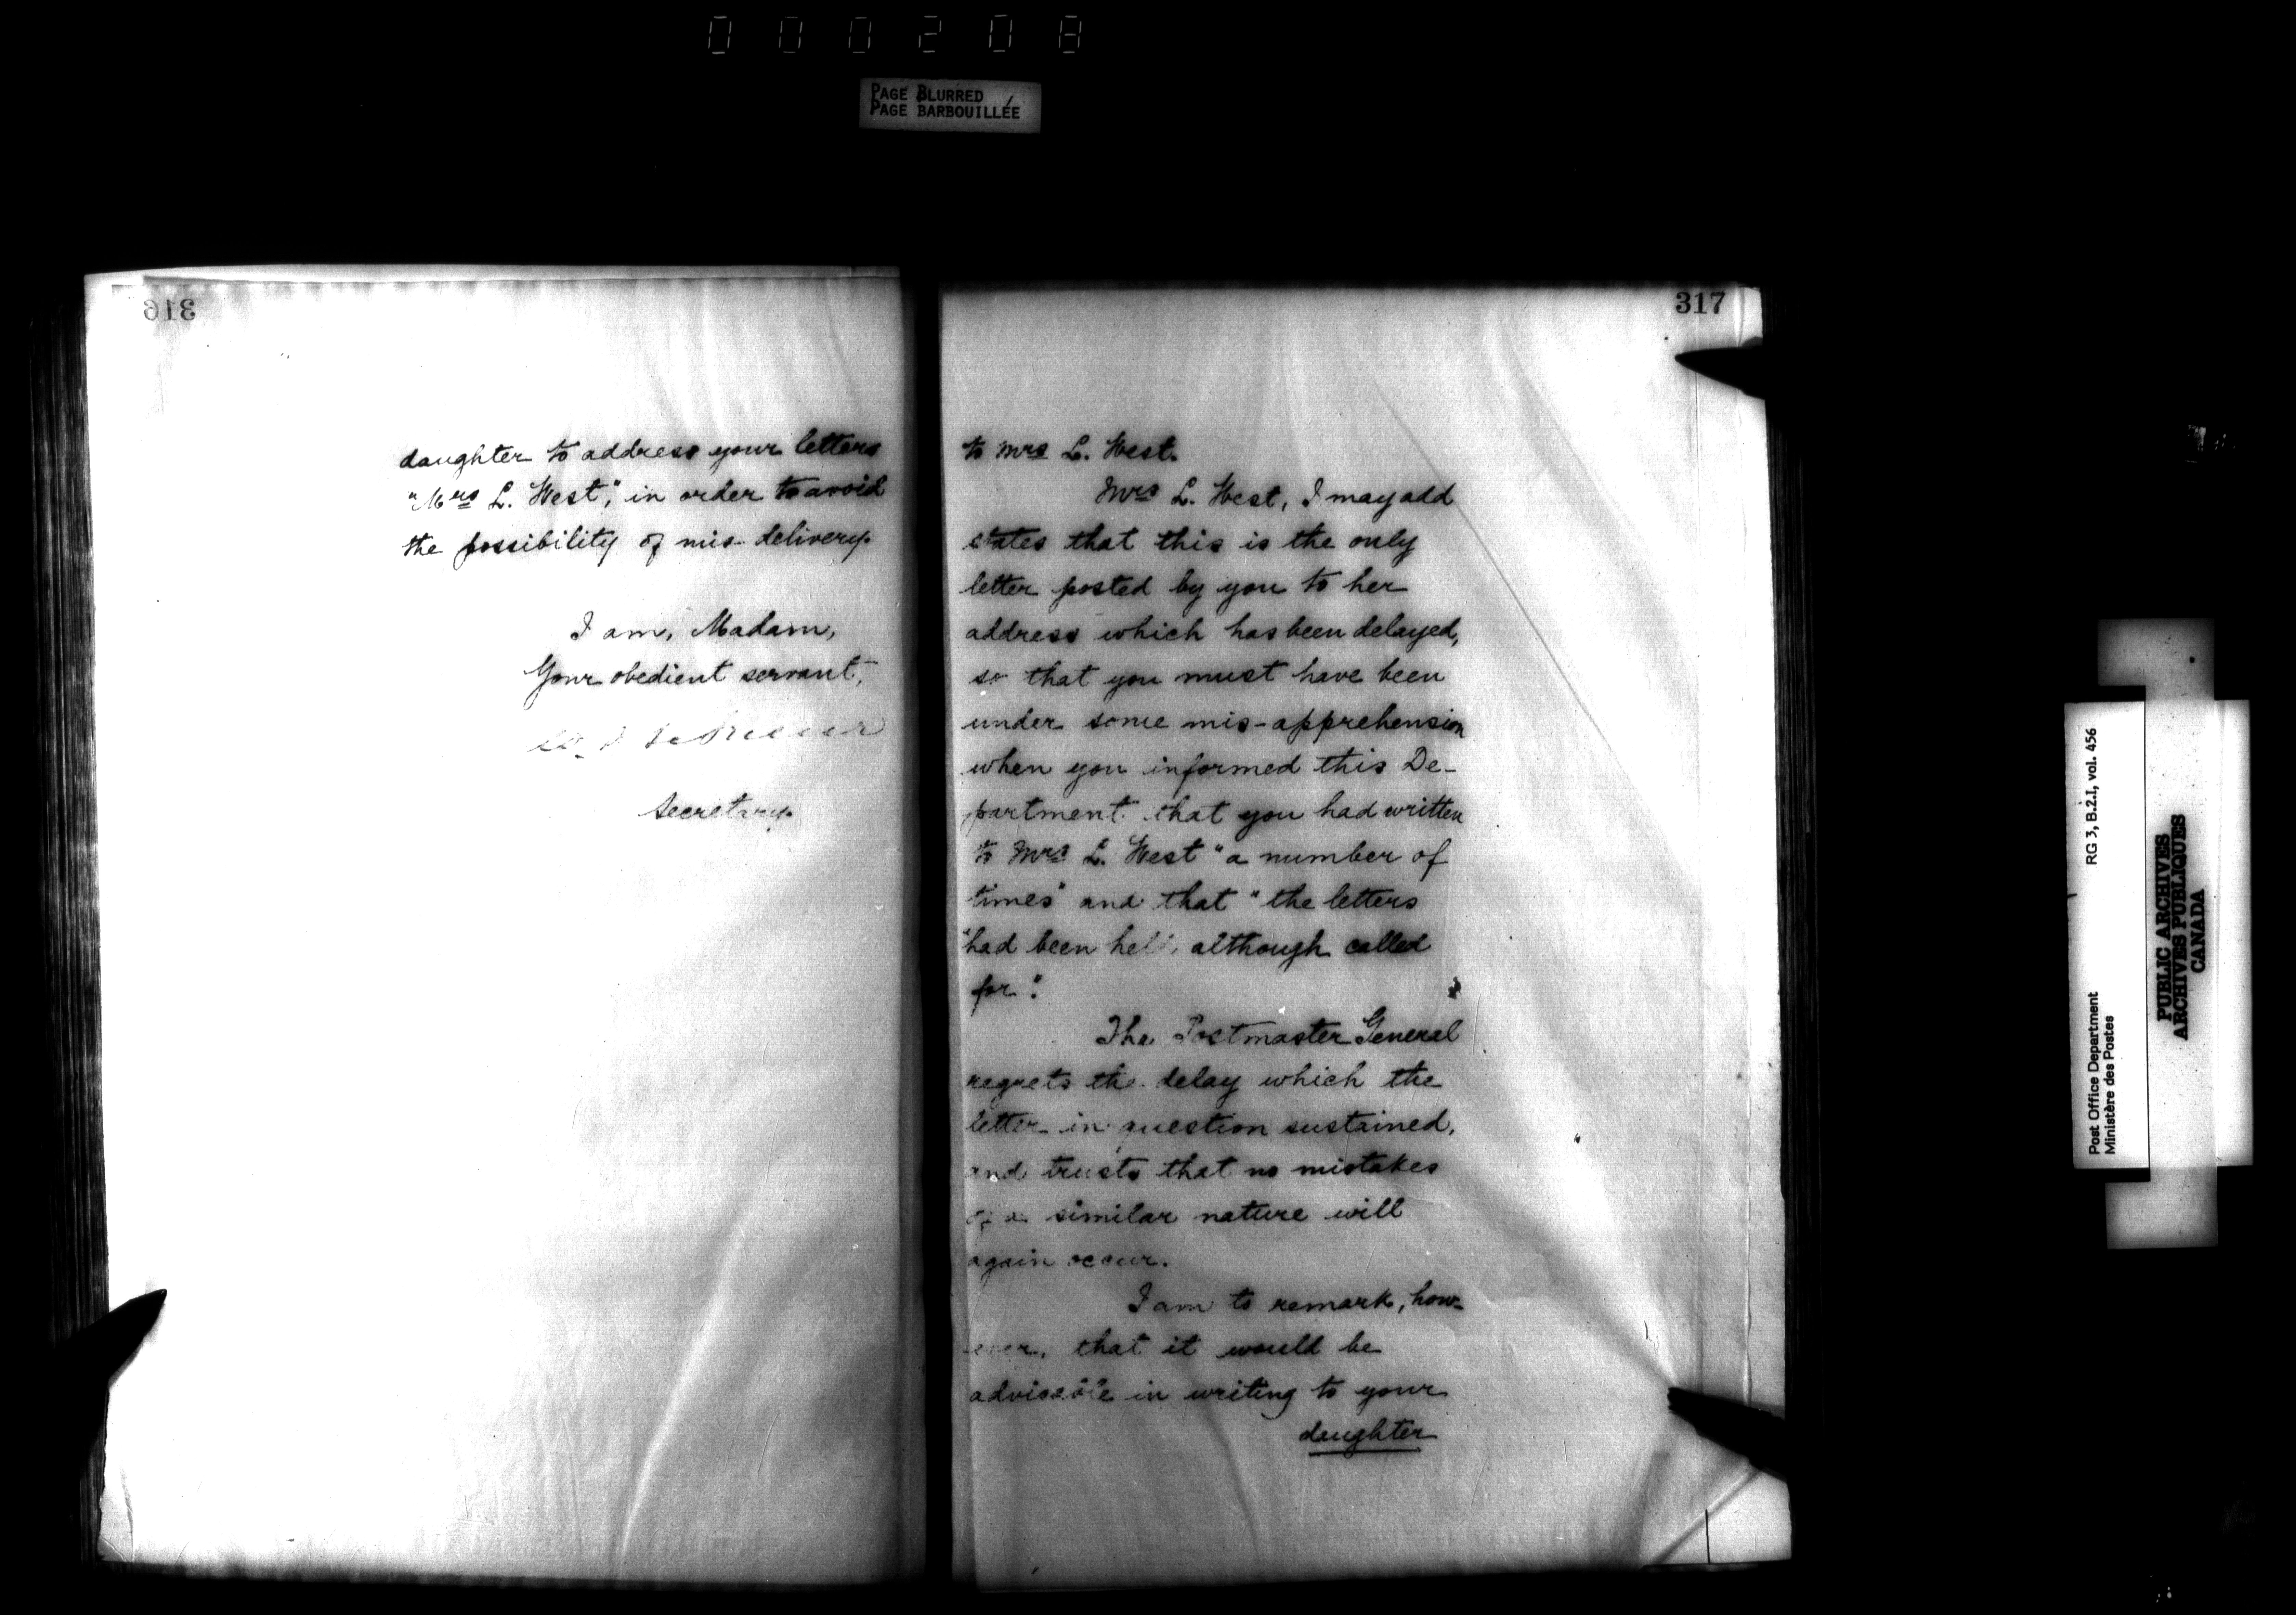 000208
PAGE BLURRED
PAGE BARBOUILLÉE
316
daughter to address your letters
"Mrs L. West," in order to avoid
the possibility of mis-delivery.
I am, Madam,
Your obedient servant,
Secretary.
317
to Mrs L. West.
Mrs L. West, I may add
states that this is the only
letter posted by you to her
address which has been delayed,
so that you must have been
under some mis-apprehension
when you informed this De-
partment that you had written
to Mrs L. West "a number of
times" and that "the letters
"had been held although called
for".
The Postmaster General
regrets the delay which the
letter in question sustained,
and trusts that no mistakes
of a similar nature will
again occur.
I am to remark, how-
ever, that it would be
advisable in writing to your
daughter
Post Office Department
Ministère des Postes
RG 3, B.2.I, vol. 456
PUBLIC ARCHIVES
ARCHIVES PUBLIQUES
CANADA